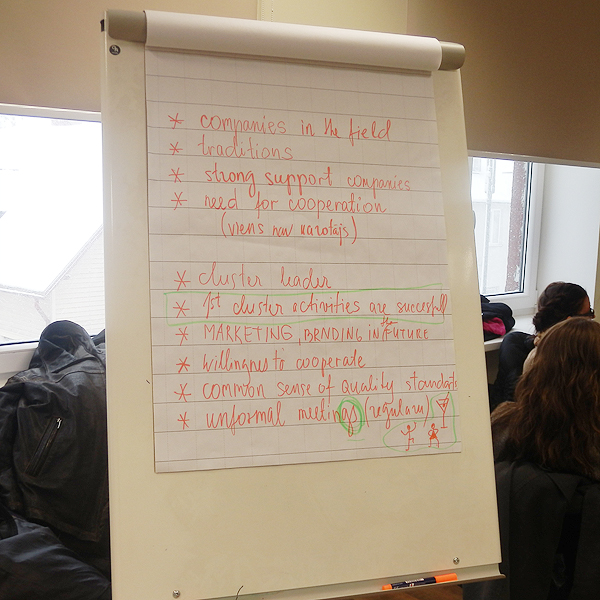 * companies in the field
* traditions
* strong support companies
* need for cooperation
(viens nav karotājs)
* cluster leader
* 1st cluster activities are succesfull
* MARKETING, BENDING in the FUTURE
* willingnes to cooperate
* common sense of quality standarts
* unformal meetings (regulary)